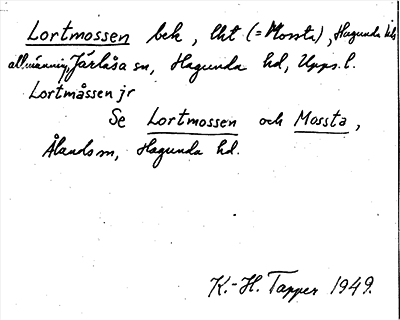 Lortmossen bek, lht (= Mossta), Hagunda hds
allmänning, Järlåsa sn, Hagunda hd, Upps. l.
Lortmåssen jr
Se Lortmossen och Mossta,
Ålands sn, Hagunda hd.
K.-H. Tapper 1949.